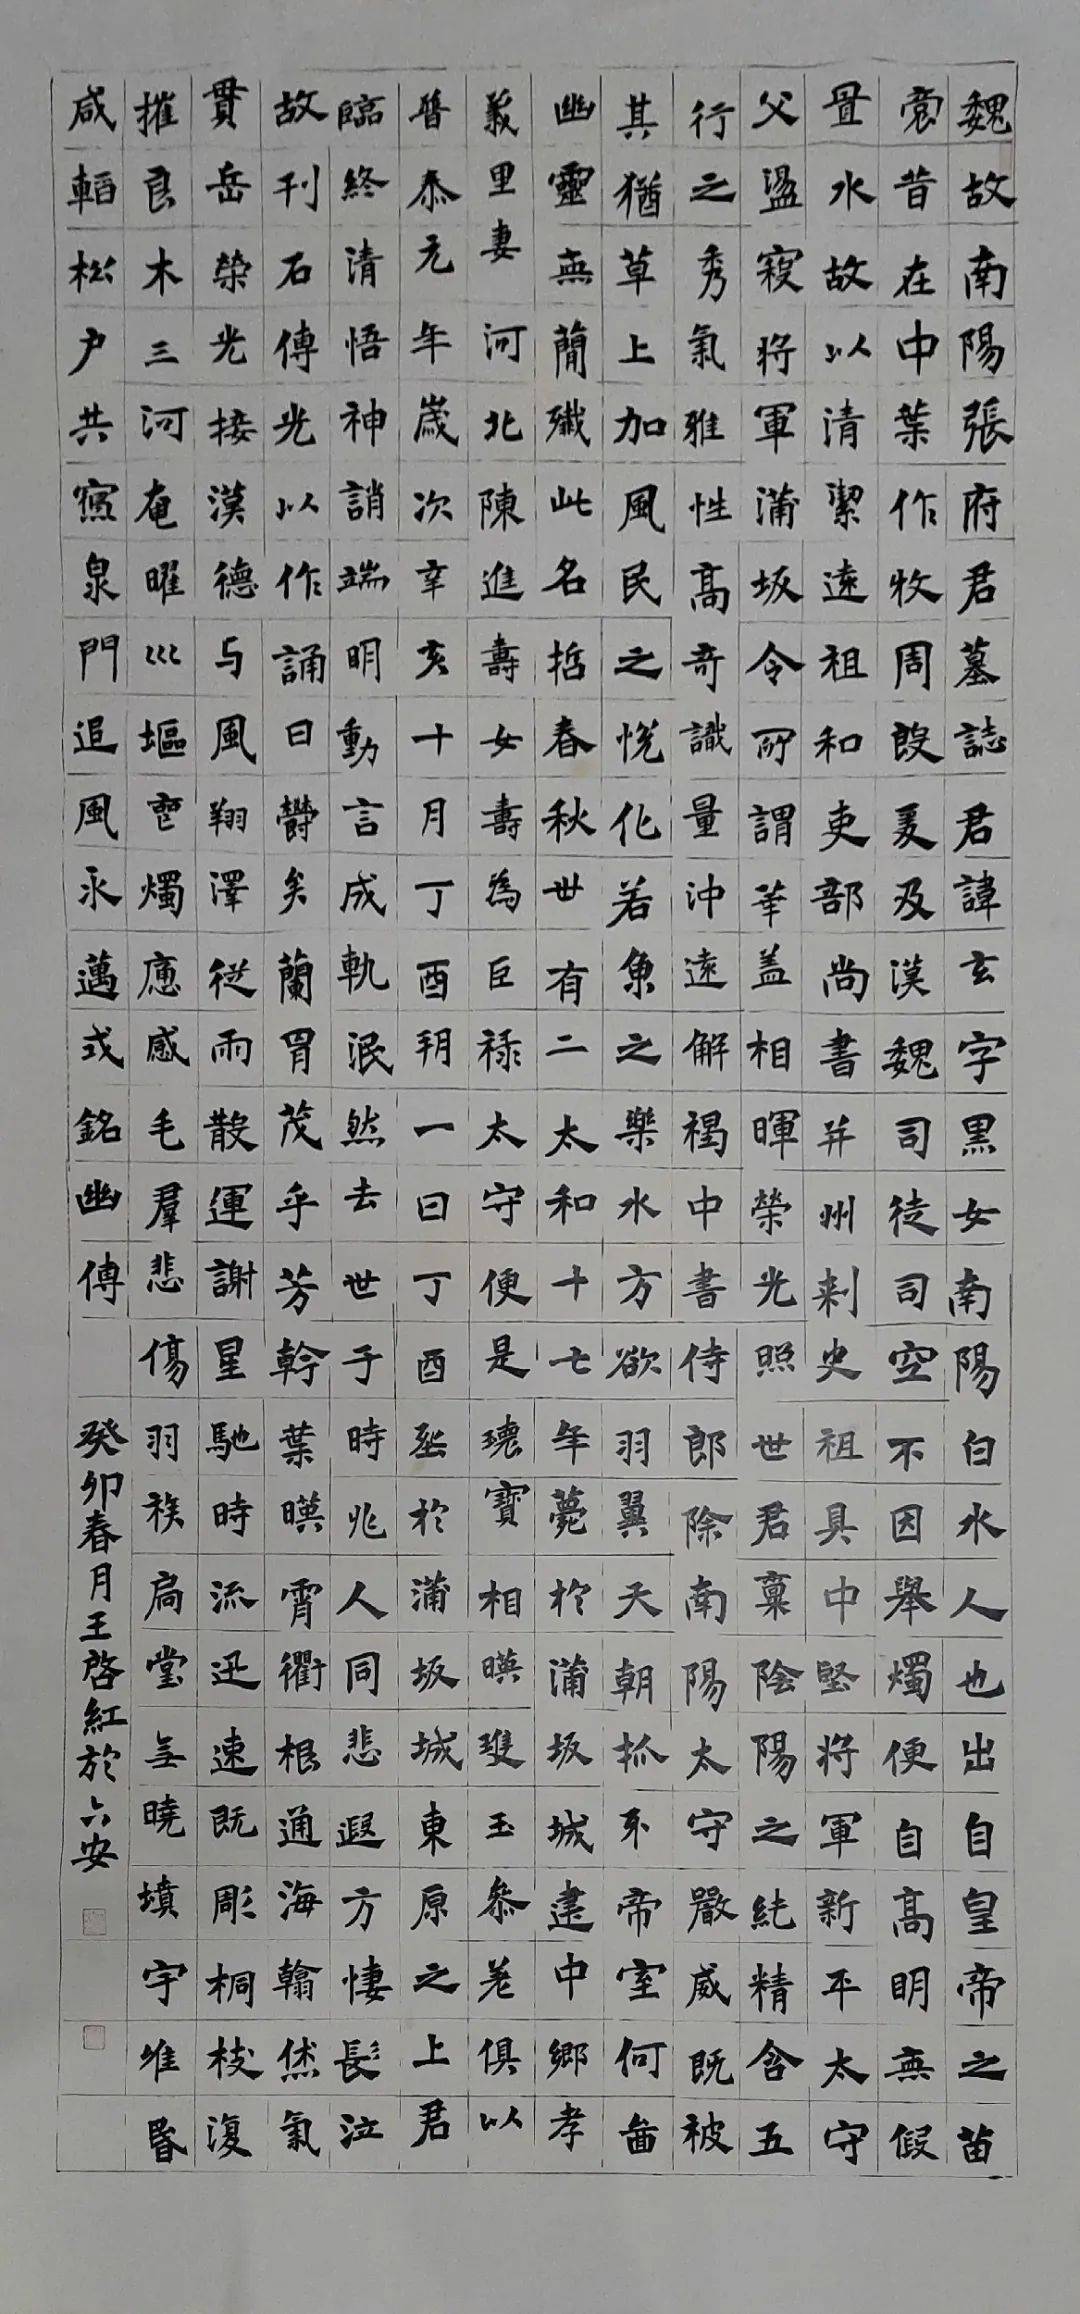 魏故南陽張府君墓誌君諱玄字黑女南陽白水人也出自皇帝之苗
裔昔在中葉作牧周殷爰及漢魏司徒司空不因舉燭便自高明無假
置水故以清潔遠祖和吏部尚書并州刺史祖具中堅將軍新平太守
父盪寇將軍蒲坂令所謂華盖相暉榮光照世君稟陰陽之純精含五
行之秀氣雅性高奇識量沖遠解褐中書侍郎除南陽太守嚴威既被
其猶草上加風民之悅化若魚之樂水方欲羽翼天朝抓牙帝室何啚
幽靈無簡殲此名哲春秋世有二太和十七年薨於蒲坂城建中鄉孝
義里妻河北陳進壽女壽為巨祿太守便是瓌寶相暎雙玉參差俱以
普泰元年歲次辛亥十月丁酉朔一日丁酉㘸於蒲坂城東原之上君
臨終清悟神誚端明動言成軌泯然去世于時兆人同悲遐方悽長泣
故刊石傳光以作誦曰鬱矣蘭胄茂乎芳幹葉暎霄衢根通海翰烋氣
貫岳榮光接漢德与風翔澤從雨散運謝星馳時流迅速既彫桐枝復
摧良木三河奄曜巛堰㗊燭應感毛羣悲傷羽族扃堂無曉墳宇唯昏
咸輡松户共窵泉門追風永邁式銘幽傳
癸卯春月王啓紅於六安